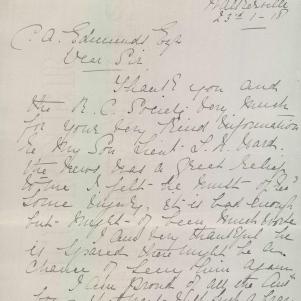 Walkerville
23rd 1-18
C. A. Edmunds Esq
Dear Sir
Thank you and
the R. C. Society very much
for your very kind information
re my Son Lieut
the news was a great relief
to me I felt he must of
some injury, it is bad enough
but might of been much worse
I am very thankful he
is spared there might be a
chance of seeing him again
I am Proud of all the